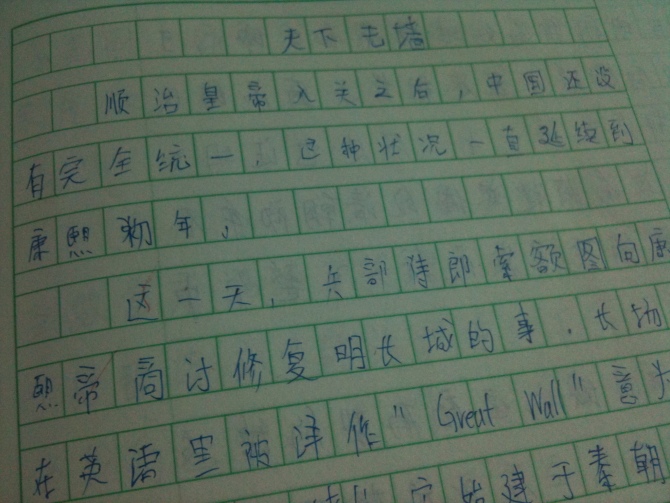 天下无墙
顺治皇帝入关之后，中国还没
有完全统一，这种状况一直延续到
康熙初年，
这一天，兵部侍郎索额图向康
熙帝商讨修复明长城的事．长城
在英语里被译作"Great Wall"意为
它始建于秦朝